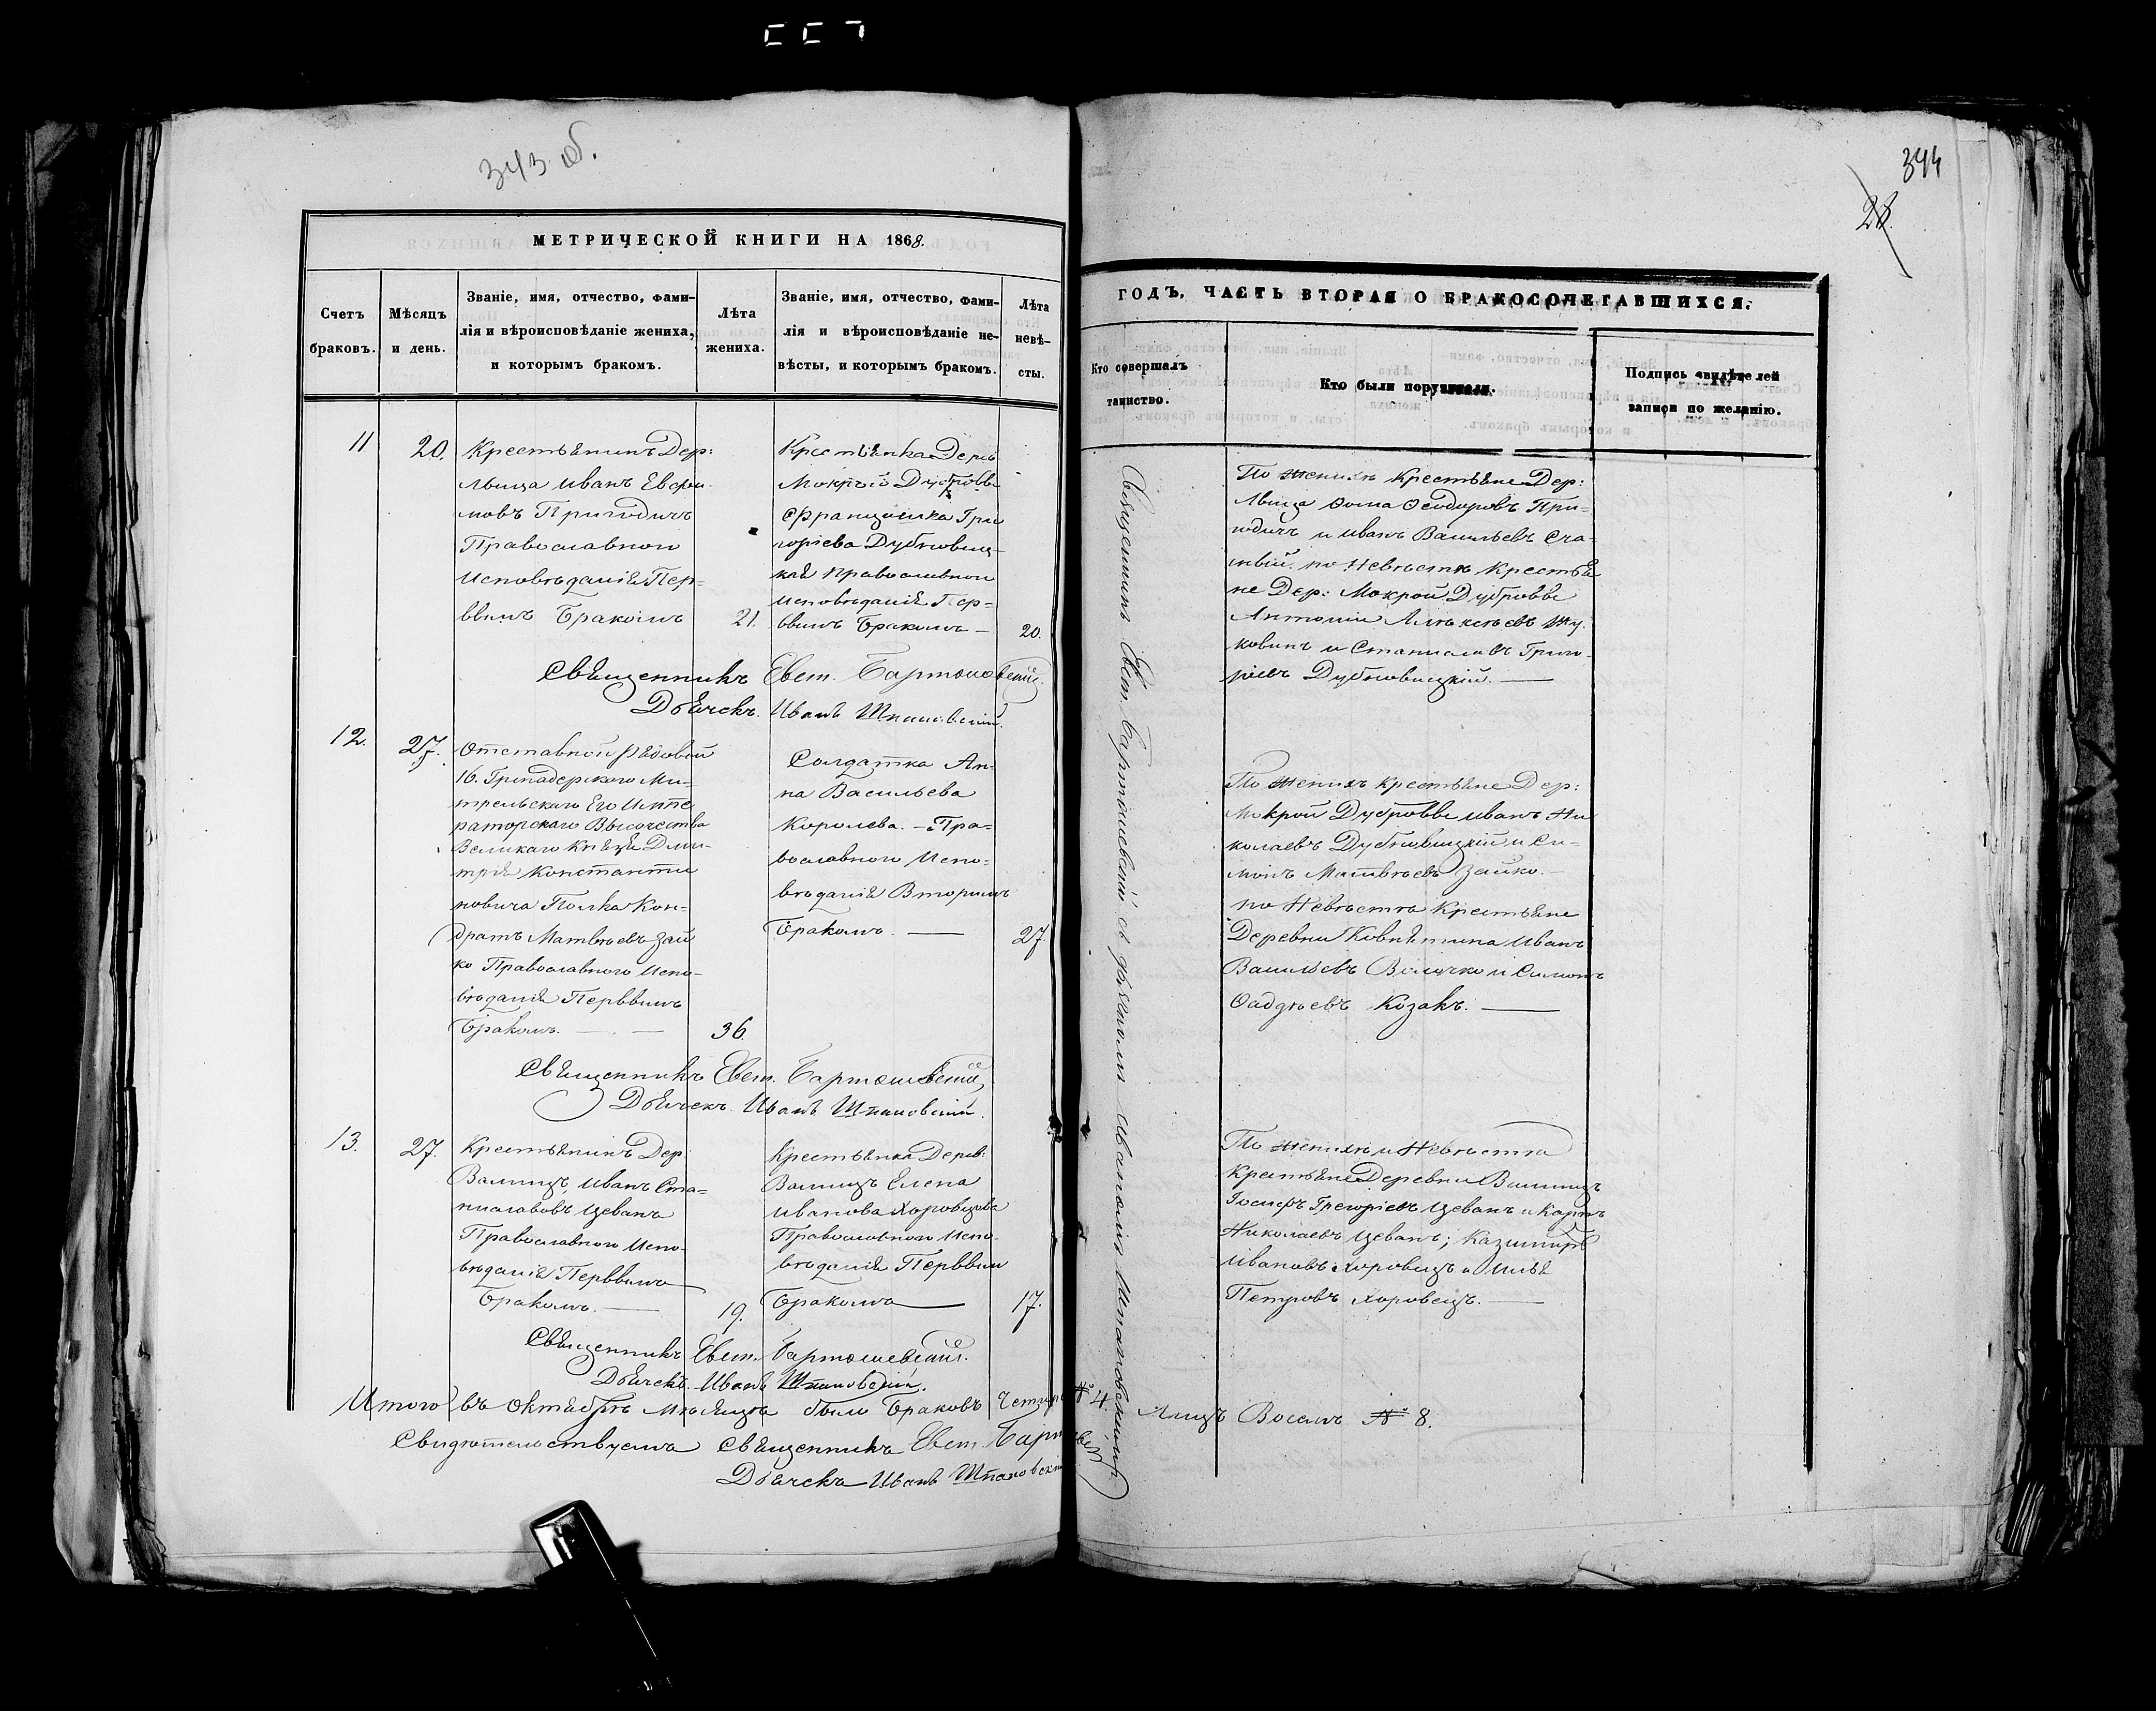 343 об.
344
28.
МЕТРИЧЕСКОЙ КНИГИ НА 1868.
ГОДЪ, ЧАСТЬ ВТОРАЯ О БРАКОСОЧЕТАВШИХСЯ.
Счетъ
браковъ.
Мѣсяцъ
и день.
Званіе, имя, отчество, фами-
лія и вѣроисповѣданіе жениха,
и которымъ бракомъ.
Лѣта
жениха.
Званіе, имя, отчество, фами-
лія и вѣроисповѣданіе не-
вѣсты, и которымъ бракомъ.
Лѣта
невѣ-
сты.
Кто совершалъ
таинство.
Кто были поручители.
Подпись свидѣтелей
записи по желанію.
11
20.
Крестьянинъ Дер:
Иванъ
Пригодичъ
Православнаго
Исповѣданія Пер=
вымъ Бракомъ
21.
Крестьянка Дерев
Мокрой Дубровы
Францишка Гри
горіева Дубновиц-
кая Православнаго
Исповѣданія Пер=
вымъ Бракомъ —
20.
По женихѣ Крестьяне Дер:
Ѳома Ѳеодоровъ При=
годичъ и Иванъ Васильевъ
по Невѣстѣ Крестья
не Дер: Мокрой Дубровы
Антоній Алексѣевъ Жу
ковинъ и Станиславъ Григо-
ріевъ Дубновицкій. —
Священникъ Евст. Бартошевскій
Дьячекъ. Иванъ Шпановскій.
Священникъ Евст. Бартошевскій съ дьячкомъ Иваномъ Шпановскимъ
12.
27.
Отставной рядовой
16. Гренадерскаго Ми-
грельскаго Его Импе
раторскаго Высочества
Великаго Князя Дми-
трія Константи
новича Полка Кон-
дратъ Матвѣевъ Зай
ко Православнаго Испо-
вѣданія Первымъ
Бракомъ. — —
36.
Солдатка Ан-
на Васильева
Королева. — Пра=
вославнаго Испо=
вѣданія Вторымъ
Бракомъ. —
27.
По женихѣ Крестьяне Дер:
Мокрой Дубровы Иванъ Ни
колаевъ Дубновицкій и Си-
монъ Матвѣевъ Зайко. —
по Невѣстѣ Крестьяне
Деревни Ковнятина Иванъ
Васильевъ Величко и Симонъ
Ѳаддѣевъ Козакъ. —
Священникъ Евст. Бартошевскій
Дьячекъ. Иванъ Шпановскій.
13.
27.
Крестьянинъ Дер
Иванъ Ста=
ниславовъ Цеванъ
Православнаго Испо-
вѣданія Первымъ
Бракомъ. —
19.
Крестьянка Дерев:
Елена
Иванова Хоровцова
Православнаго Испо-
вѣданія Первым
Бракомъ —
17.
По женихѣ и Невѣстѣ
Крестьяне Деревни
Іосифъ Грегоріевъ Цеванъ и Карпъ
Николаевъ Цеванъ; Казимиръ
Ивановъ Хоровецъ и Илья
Петровъ Хоровецъ. —
Священникъ Евст. Бартошевскій.
Дьячекъ. Иванъ Шпановскій.
Итого въ Октябрѣ Мѣсяцѣ было Браковъ Четыре № 4. Лицъ Восемь № 8.
Свидѣтельствуемъ Священникъ Евст.
Дьячекъ Иванъ Шпановскій